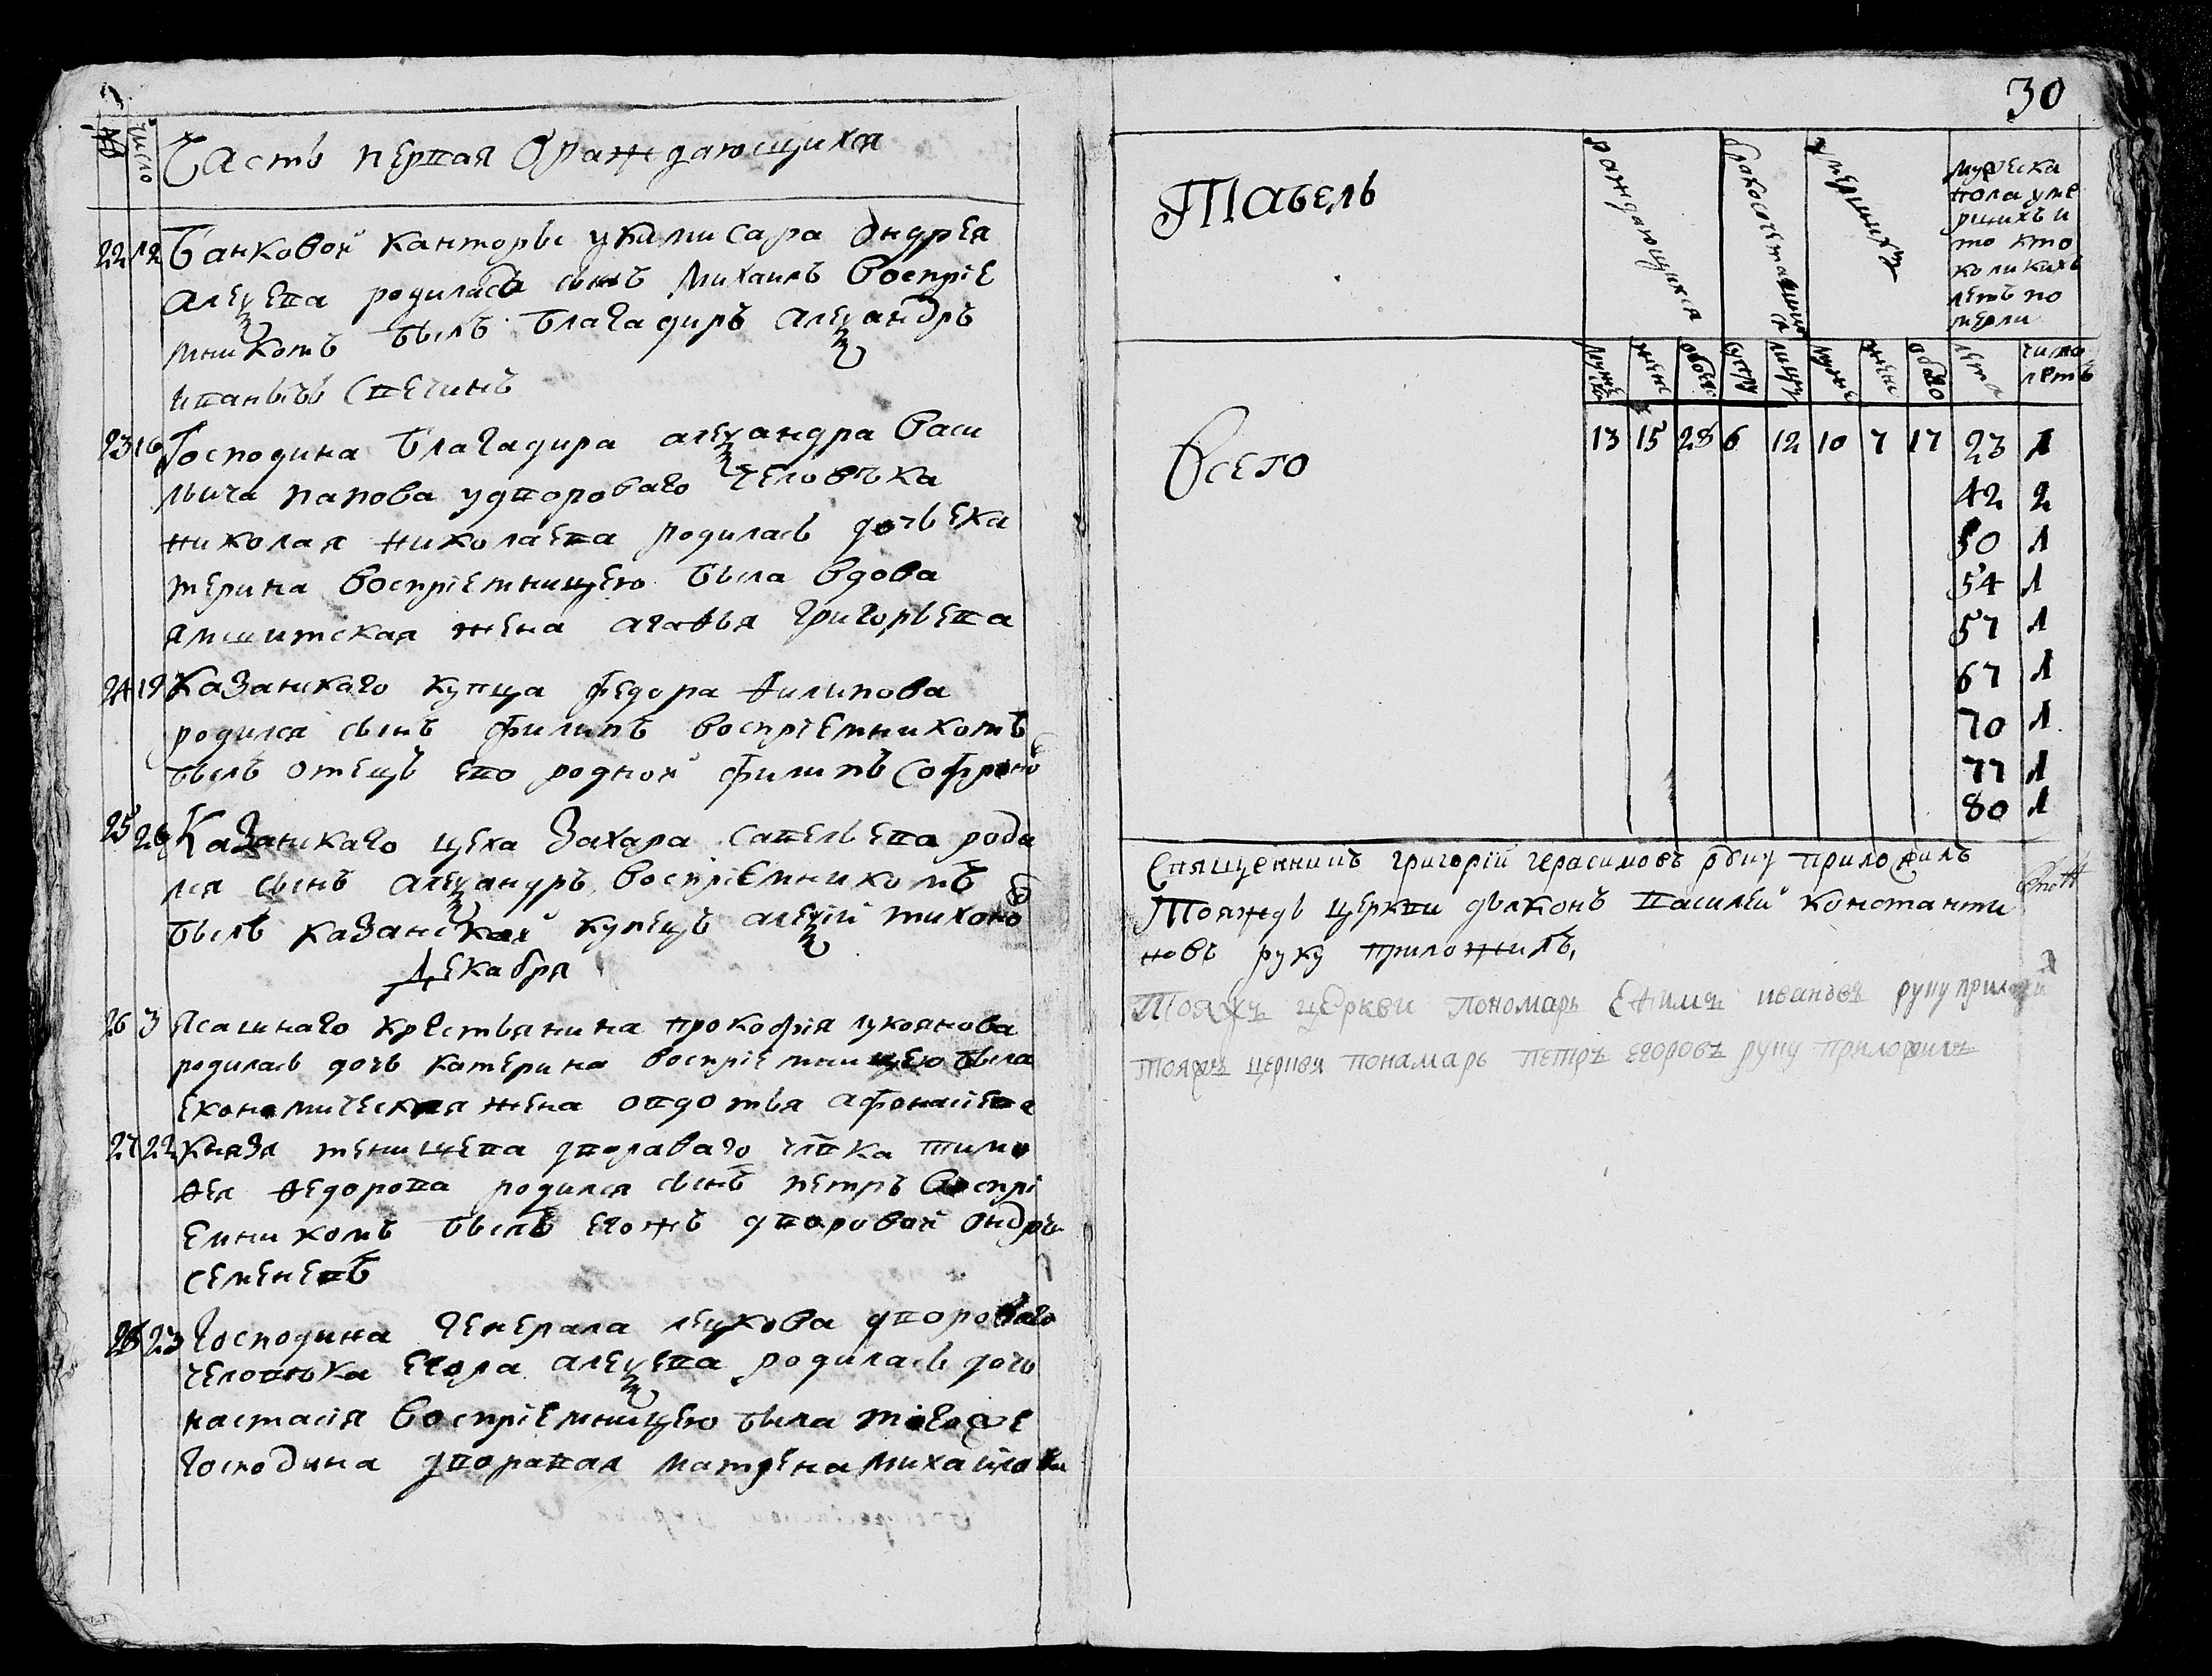 № число Часть первая Ораждающихся
22 12 Банковой канторы укамисара Андрея
алеѯева родилась сынъ Михаилъ воспріе
мникомъ былъ благадиръ алеѯандръ
ивановъ Свечинъ
23 16 Господина благадира алеѯандра Васи
льича папова удворового человѣка
николая николаева родилась дочь ека
терина воспріемницею была вдова
ямшитская жена агаѳья григорьева
24 19 Казанского купца федора ѳилипова
родился сынъ филипъ воспріемникомъ
былъ отецъ ево родной филипъ Софроно
25 26 Казанскаго цеха Захара савельева роди
лся сынъ алеѯандръ воспріемникомъ
былъ казанской купецъ алеѯій тихоновъ
Декабря
26 3 Ясашнаго крестьянина прокофія лукоянова
родилась дочь катерина воспріемницею была
економическая жена овдотья афонасіева
27 22 князя тенишева двораваго члвка тимо
ѳея ѳедорова родился сынъ петръ воспрі
емникомъ былъ егожъ дворовой Андрѣи
семеневъ
28 23 Господина генерала лецкова дворовога
человѣка егора алеѯева родилась дочь
настасія воспріемницею была тогоже
господина дворавая матрена михаилова
30
Табель
раждающихся
бракосочетавшихся
умершихъ
мужеска
пола уме
ршихъ и
то кто
коликихъ
летъ по
мерли
мужеска женс обоего супру лицъ мужес женс обоего лета число летъ
Всего 13 15 28 6 12 10 7 17 23 1
42 2
50 1
54 1
57 1
67 1
70 1
77 1
80 1
Священникъ григорій герасимовъ руку приложилъ
Тояжде церкви дьяконъ Василей константи
новъ руку приложилъ,
Тояжъ церкви пономарь Еѳимъ ивановъ руку приложи
тояжъ церкви понамарь петръ егоровъ руку приложилъ